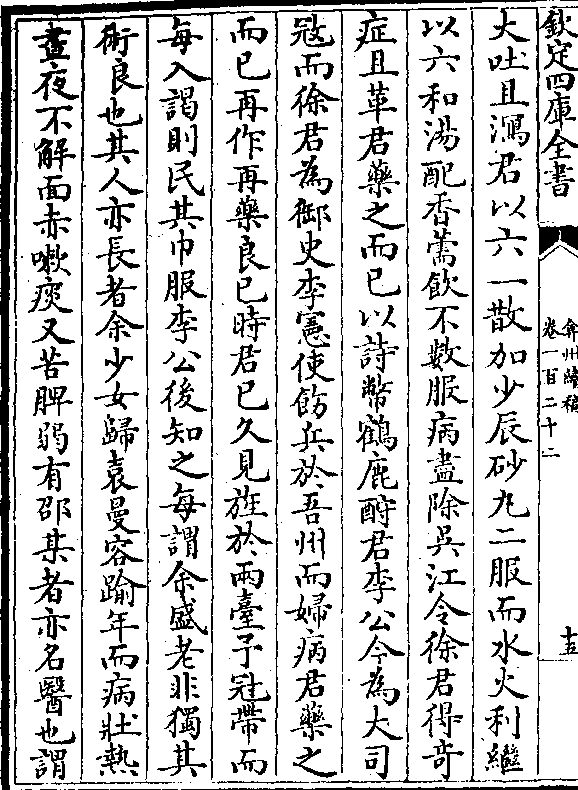 欽定四庫全書
弇州續稿
卷一百二十二
十五
大吐且瀉君以六一散加少辰砂丸二服而水火利繼
以六和湯配香薷飲不數服病盡除吳江令徐君得奇
症且革君藥之而已以詩幣鶴鹿酧君李公今為大司
冦而徐君為御史李憲使飭兵於吾州而婦病君藥之
而已再作再藥良已時君已久見旌於兩臺予冠帶而
每入謁則民其巾服李公後知之每謂余盛老非獨其
術良也其人亦長者余少女歸袁曼容踰年而病壯熱
晝夜不解面赤嗽痰又苦脾弱有邵某者亦名醫也謂